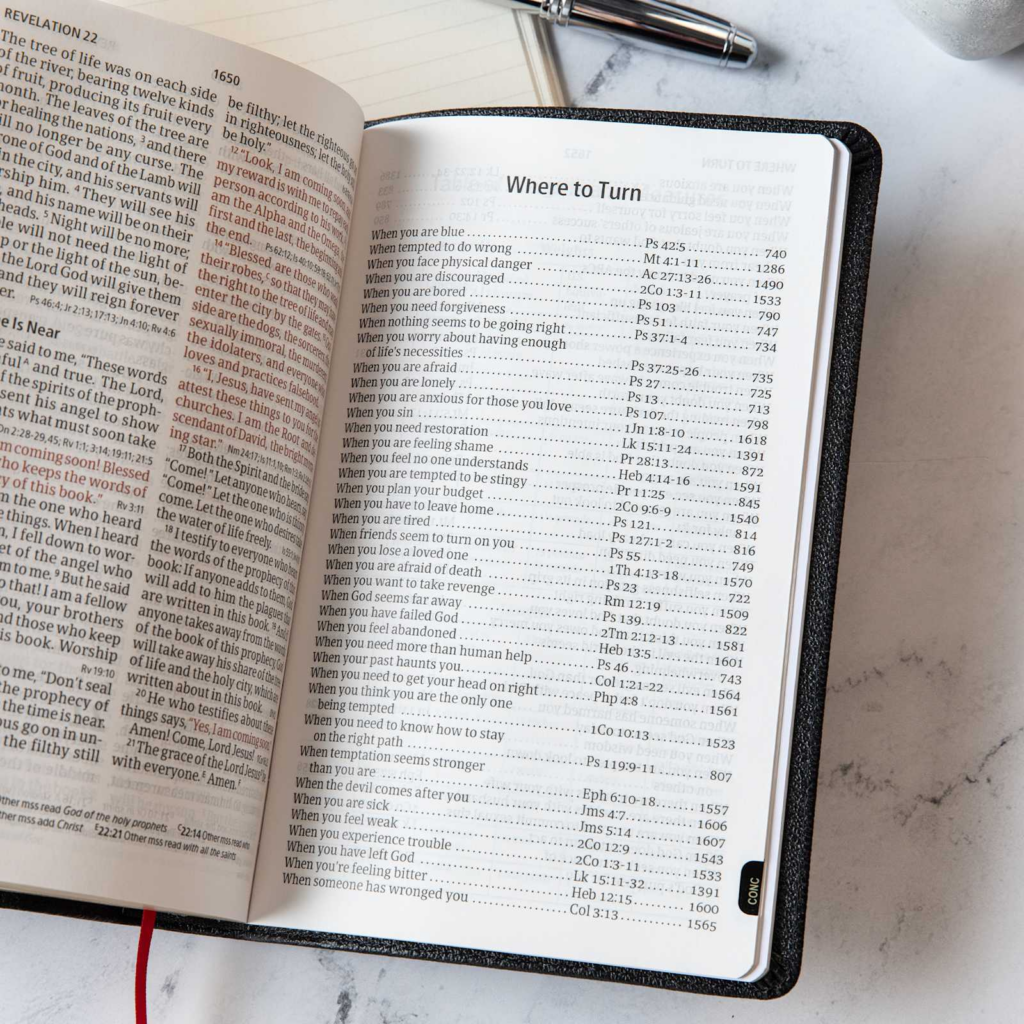 REVELATION 22
1650
The tree of life was on each side
of the river, bearing twelve kinds
of fruit, producing its fruit every
month. The leaves of the tree are
healing the nations, ³ and there
no longer be any curse. The
of God and of the Lamb will
in the city, and his servants will
him. ⁴ They will see his
and his name will be on their
⁵ Night will be no more;
will not need the light of
or the light of the sun, be-
the Lord God will give them
and they will reign forever
Ps 46:4; Jr 2:13; 17:13; Jn 4:10; Rv 4:6
Is Near
said to me, “These words
and true. The Lord,
of the spirits of the proph-
sent his angel to show
what must soon take
2:28-29,45; Rv 1:1; 3:14; 19:11; 21:5
coming soon! Blessed
who keeps the words of
of this book.” Rv 3:11
the one who heard
things. When I heard
I fell down to wor-
of the angel who
to me. ⁹ But he said
that! I am a fellow
your brothers
and those who keep
book. Worship
Rv 19:10
to me, “Don’t seal
the prophecy of
the time is near.
go on in un-
the filthy still
be filthy; let the righteous
in righteousness; let the
be holy.”
¹² “Look, I am coming soon,
my reward is with me to repay
person according to his work.
am the Alpha and the Omega,
first and the last, the beginning
the end.
¹⁴ “Blessed are those who
their robes, so that they may
the right to the tree of life and
enter the city by the gates.
side are the dogs, the sorcerers,
sexually immoral, the murderers,
the idolaters, and everyone who
loves and practices falsehood.
¹⁶ “I, Jesus, have sent my angel
attest these things to you for the
churches. I am the Root and
scendant of David, the bright
ing star.”
¹⁷ Both the Spirit and the bride
“Come!” Let anyone who hears,
“Come!” Let the one who is thirsty
come. Let the one who desires take
the water of life freely.
¹⁸ I testify to everyone who hears
the words of the prophecy of this
book: If anyone adds to them, God
will add to him the plagues that
are written in this book. ¹⁹ And if
anyone takes away from the words
of the book of this prophecy, God
will take away his share of the tree
of life and the holy city, which are
written about in this book.
²⁰ He who testifies about these
things says, “Yes, I am coming soon.”
Amen! Come, Lord Jesus!
²¹ The grace of the Lord Jesus be
with everyone. Amen.
Other mss read God of the holy prophets 22:14 Other mss read
Other mss add Christ 22:21 Other mss read with all the saints
Where to Turn
When you are blue ........ Ps 42:5 ........ 740
When tempted to do wrong ........ Mt 4:1-11 ........ 1286
When you face physical danger ........ Ac 27:13-26 ........ 1490
When you are discouraged ........ 2Co 1:3-11 ........ 1533
When you are bored ........ Ps 103 ........ 790
When you need forgiveness ........ Ps 51 ........ 747
When nothing seems to be going right ........ Ps 37:1-4 ........ 734
When you worry about having enough
of life’s necessities ........ Ps 37:25-26 ........ 735
When you are afraid ........ Ps 27 ........ 725
When you are lonely ........ Ps 13 ........ 713
When you are anxious for those you love ........ Ps 107 ........ 798
When you sin ........ 1Jn 1:8-10 ........ 1618
When you need restoration ........ Lk 15:11-24 ........ 1391
When you are feeling shame ........ Pr 28:13 ........ 872
When you feel no one understands ........ Heb 4:14-16 ........ 1591
When you are tempted to be stingy ........ Pr 11:25 ........ 845
When you plan your budget ........ 2Co 9:6-9 ........ 1540
When you have to leave home ........ Ps 121 ........ 814
When you are tired ........ Ps 127:1-2 ........ 816
When friends seem to turn on you ........ Ps 55 ........ 749
When you lose a loved one ........ 1Th 4:13-18 ........ 1570
When you are afraid of death ........ Ps 23 ........ 722
When you want to take revenge ........ Rm 12:19 ........ 1509
When God seems far away ........ Ps 139 ........ 822
When you have failed God ........ 2Tm 2:12-13 ........ 1581
When you feel abandoned ........ Heb 13:5 ........ 1601
When you need more than human help ........ Ps 46 ........ 743
When your past haunts you ........ Col 1:21-22 ........ 1564
When you need to get your head on right ........ Php 4:8 ........ 1561
When you think you are the only one
being tempted ........ 1Co 10:13 ........ 1523
When you need to know how to stay
on the right path ........ Ps 119:9-11 ........ 807
When temptation seems stronger
than you are ........ Eph 6:10-18 ........ 1557
When the devil comes after you ........ Jms 4:7 ........ 1606
When you are sick ........ Jms 5:14 ........ 1607
When you feel weak ........ 2Co 12:9 ........ 1543
When you experience trouble ........ 2Co 1:3-11 ........ 1533
When you have left God ........ Lk 15:11-32 ........ 1391
When you’re feeling bitter ........ Heb 12:15 ........ 1600
When someone has wronged you ........ Col 3:13 ........ 1565
CONC